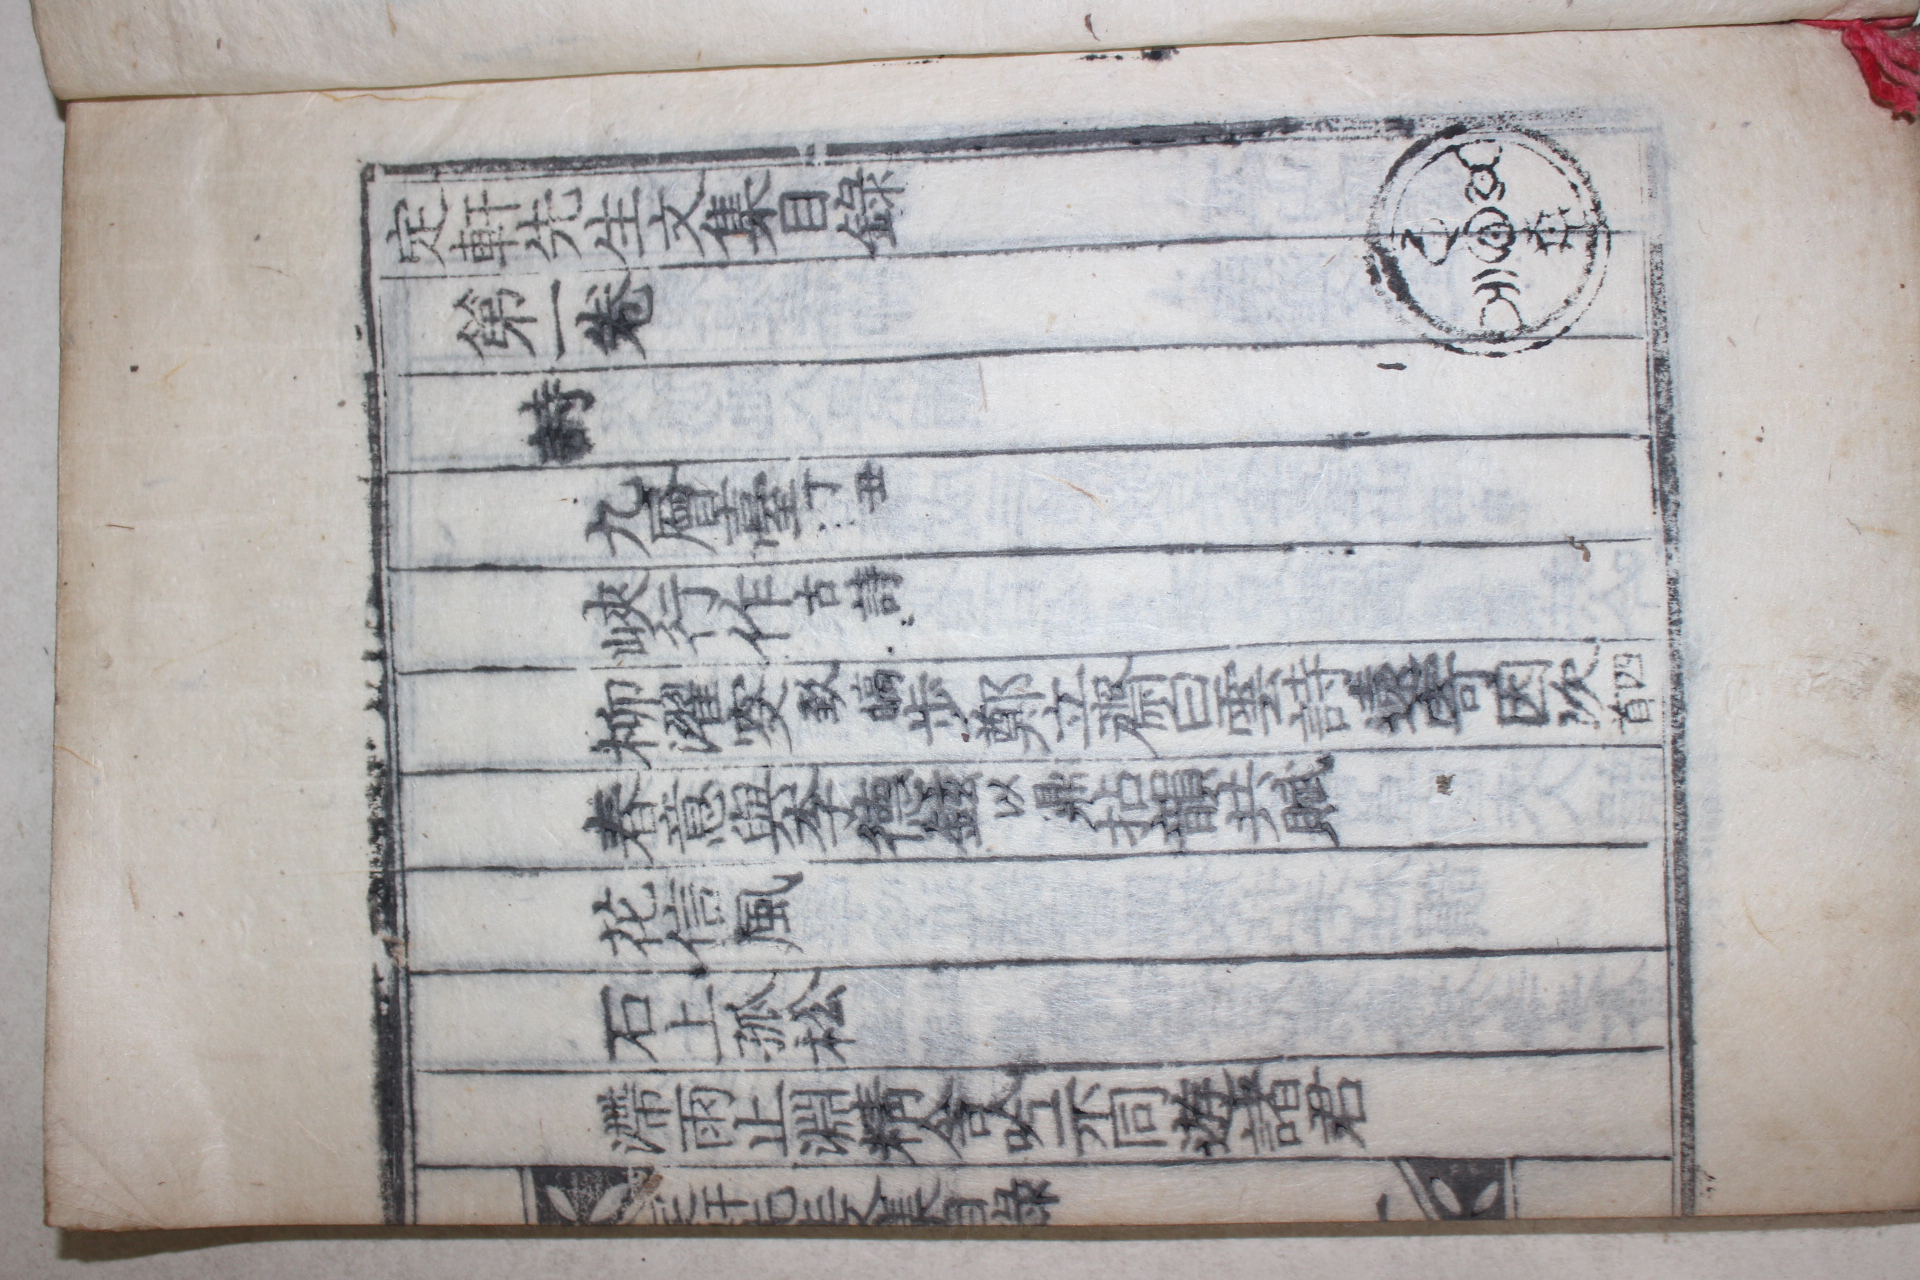 定軒先生文集目錄
第一卷
詩
九層臺丁丑
峽行作古詩
柳濯安致皜步鄭立齋白雲詩遠寄因次四首
春意與李德鉉以鼎拈韻共賦
花信風
石上孤松
滯雨止淵精舍吟示同遊諸君
定軒先生文集目錄
一